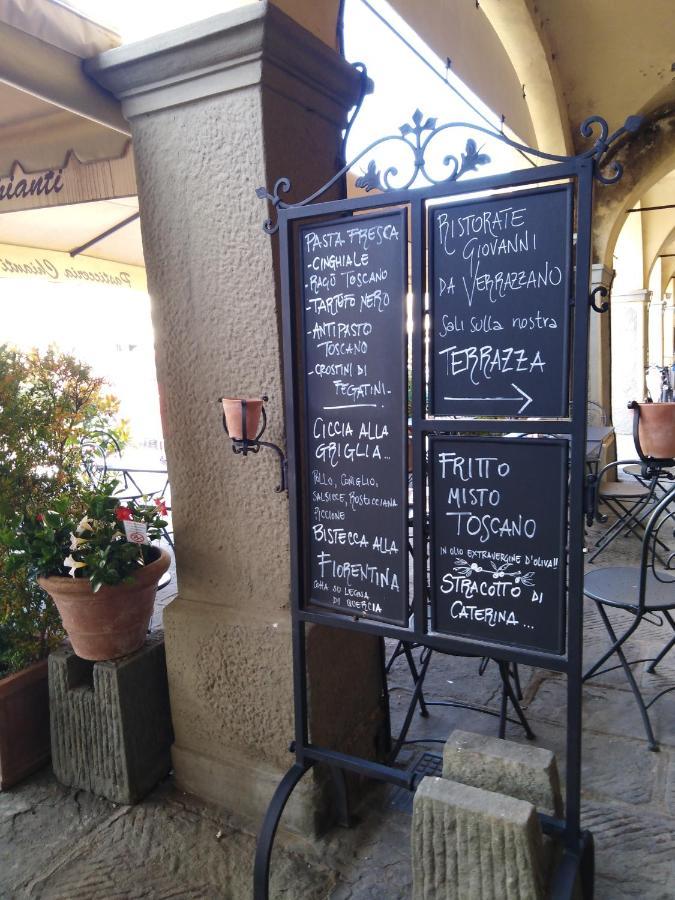 hianti
Pasticceria Chianti
PASTA FRESCA
-CINGHIALE
-RAGÙ TOSCANO
-TARTUFO NERO
-ANTIPASTO
TOSCANO
-CROSTINI DI
FEGATINI-
CICCIA ALLA
GRIGLIA...
POLLO, CONIGLIO,
SALSICCE, ROSTICCIANA
PICCIONE
BISTECCA ALLA
FIORENTINA
COTTA SU LEGNA
DI QUERCIA
RISTORATE
GIOVANNI
DA VERRAZZANO
Sali sulla nostra
TERRAZZA
FRITTO
MISTO
TOSCANO
IN OLIO EXTRAVERGINE D'OLIVA!!
STRACOTTO DI
CATERINA...